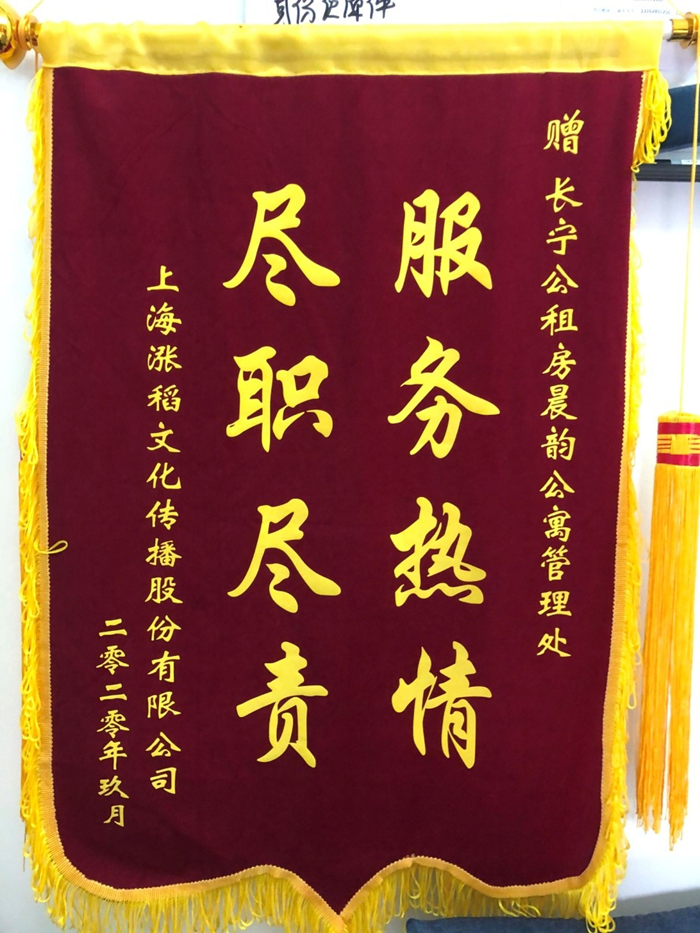 赠 长宁公租房晨韵公寓管理处
服务热情
尽职尽责
上海涨稻文化传播股份有限公司
二零二零年玖月